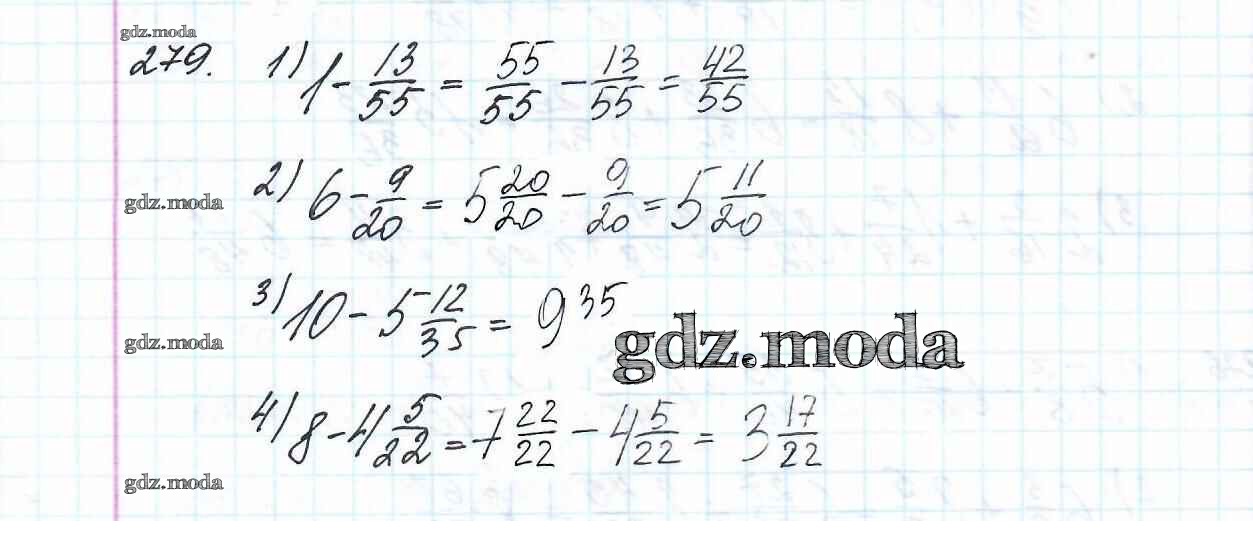 gdz.moda
279. 1) 1 - 13/55 = 55/55 - 13/55 = 42/55
gdz.moda 2) 6 - 9/20 = 5 20/20 - 9/20 = 5 11/20
3) 10 - 5 12/35 = 9 35
gdz.moda gdz.moda
4) 8 - 4 5/22 = 7 22/22 - 4 5/22 = 3 17/22
gdz.moda